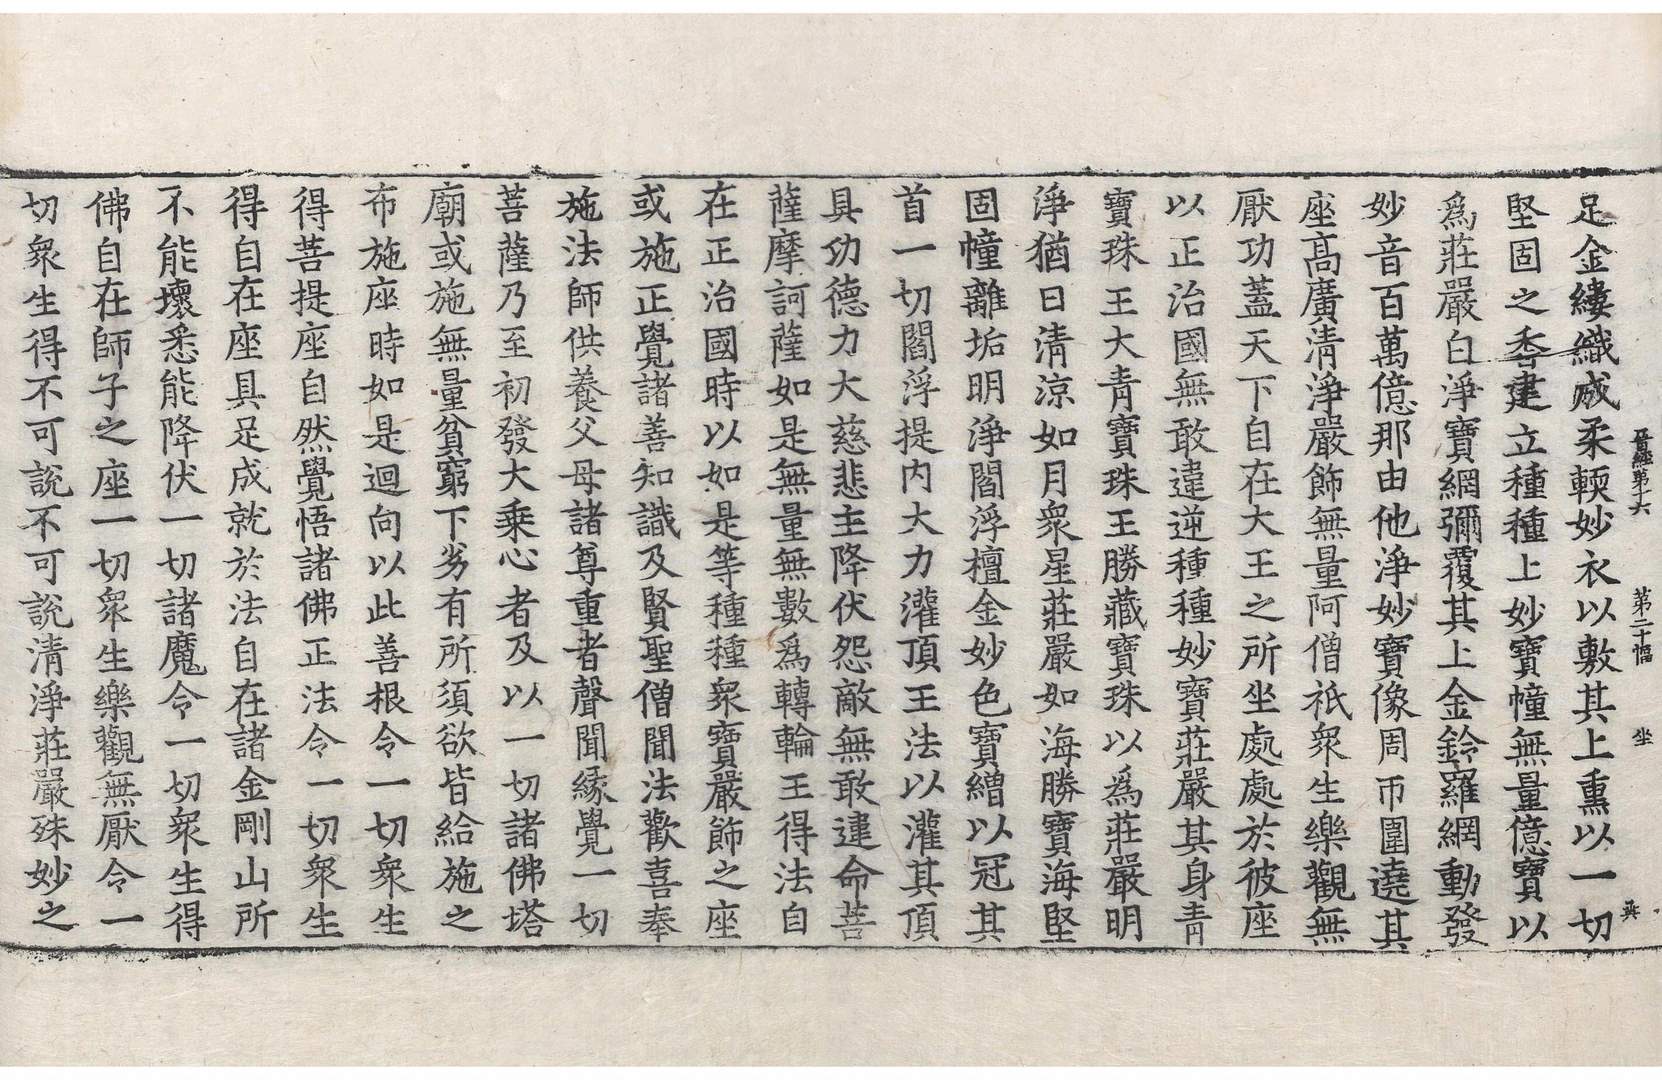 晉經第十六 第二十幅 坐
足金縷織成柔輭妙衣以敷其上熏以一切
堅固之香建立種種上妙寶幢無量億寶以
爲莊嚴白淨寶網彌覆其上金鈴羅網動發
妙音百萬億那由他淨妙寶像周帀圍遶其
座高廣清淨嚴飾無量阿僧祇衆生樂觀無
厭功蓋天下自在大王之所坐處處於彼座
以正治國無敢違逆種種妙寶莊嚴其身青
寶珠王大青寶珠王勝藏寶珠以爲莊嚴明
淨猶日清涼如月衆星莊嚴如海勝寶海堅
固幢離垢明淨閻浮檀金妙色寶繒以冠其
首一切閻浮提内大力灌頂王法以灌其頂
具功德力大慈悲主降伏怨敵無敢違命菩
薩摩訶薩如是無量無數爲轉輪王得法自
在正治國時以如是等種種衆寶嚴飾之座
或施正覺諸善知識及賢聖僧聞法歡喜奉
施法師供養父母諸尊重者聲聞緣覺一切
菩薩乃至初發大乘心者及以一切諸佛塔
廟或施無量貧窮下劣有所須欲皆給施之
布施座時如是迴向以此善根令一切衆生
得菩提座自然覺悟諸佛正法令一切衆生
得自在座具足成就於法自在諸金剛山所
不能壞悉能降伏一切諸魔令一切衆生得
佛自在師子之座一切衆生樂觀無厭令一
切衆生得不可說不可說清淨莊嚴殊妙之